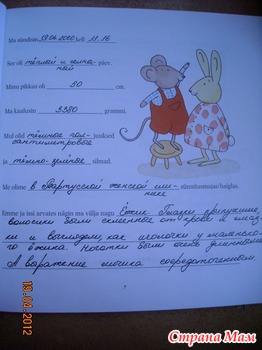 Ma sündisin 19.04.2010 kell 11.16
See oli тёплый и солнеч-
ный päev.
Minu pikkus oli 50 cm.
Ma kaalusin 3380 grammi.
Mul olid тёмные пол-
сантиметровые juuksed
ja тёмно-зелёные silmad.
Me olime в Тартуской женской кли-
нике sünnitusmajas/haiglas.
Emme ja issi arvates nägin ma välja nagu Ёжик. Глазки припухшие,
волосики были склеенные от крови и смаз-
ки и выглядели как иголочки у маленько-
го ёжика. Ноготки были очень длинными.
А выражение личика сосредоточенным.
7
19.04.2012
Страна Мам